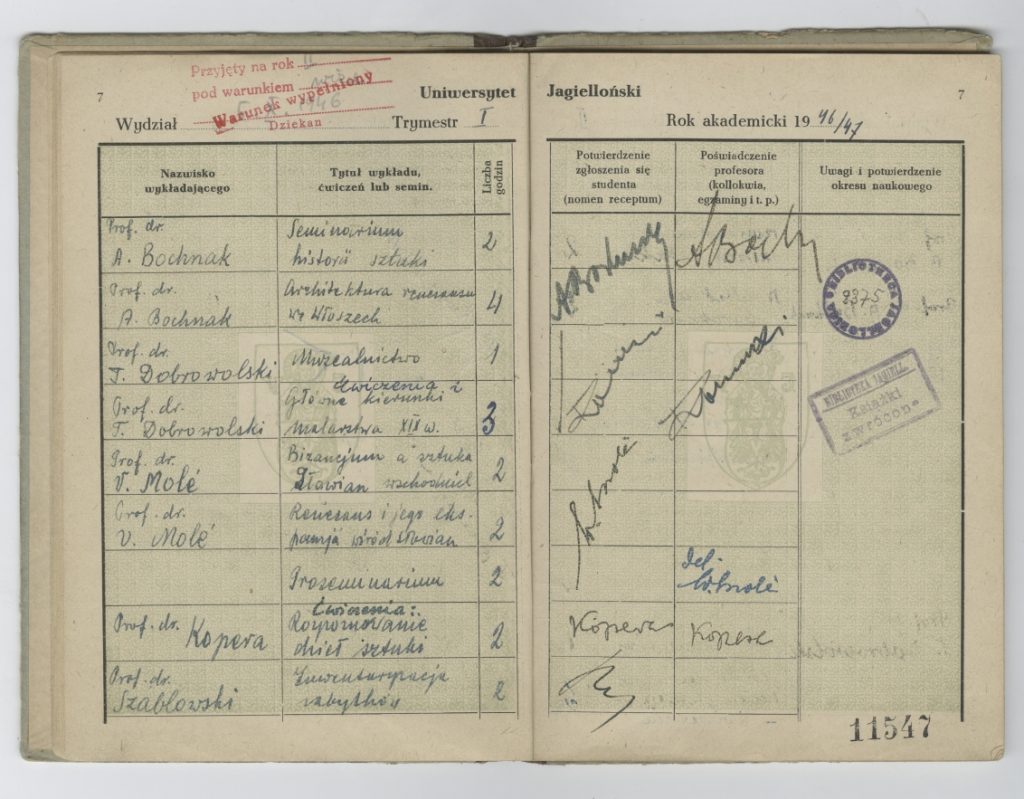 Przyjęty na rok II
pod warunkiem
Warunek wypełniony
1946
Dziekan
7
Uniwersytet Jagielloński
7
Wydział Trymestr I
Rok akademicki 19 46/47
Nazwisko wykładającego
Tytuł wykładu, ćwiczeń lub semin.
Liczba godzin
Potwierdzenie zgłoszenia się studenta (nomen receptum)
Poświadczenie profesora (kollokwia, egzaminy i t. p.)
Uwagi i potwierdzenie okresu naukowego
Prof. dr. A. Bochnak
Seminarium historii sztuki
2
Prof. dr. A. Bochnak
Architektura renesansu we Włoszech
4
Prof. dr. T. Dobrowolski
Muzealnictwo
1
Prof. dr. T. Dobrowolski
Ćwiczenia z
Główne kierunki malarstwa XIX w.
3
Prof. dr. V. Molé
Bizancjum a sztuka Słowian wschodnich
2
Prof. dr. V. Molé
Renesans i jego ekspansja wśród Słowian
2
Proseminarium
2
Prof. dr. Kopera
Ćwiczenia:
Rozpoznawanie dzieł sztuki
2
Kopera
Kopera
Prof. dr. Szablowski
Inwentaryzacja zabytków
2
BIBLIOTHECA JAGELLONICA
9375
BIBLIOTEKA JAGIELL.
Książki
zwrócono
11547